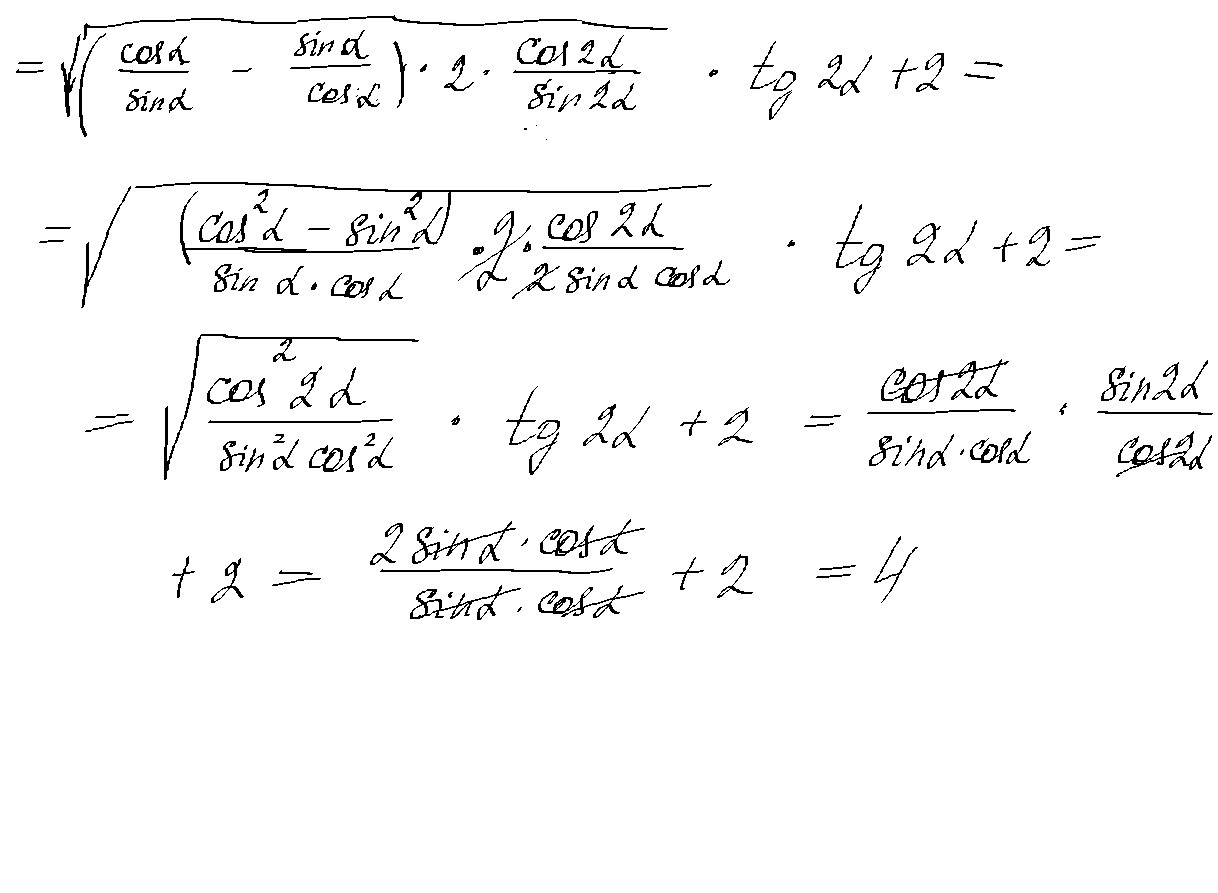 = √((cosα/sinα − sinα/cosα) · 2 · cos2α/sin2α) · tg 2α + 2 =
= √((cos²α − sin²α)/(sin α · cosα) · 2 · cos 2α/(2 sinα cosα)) · tg 2α + 2 =
= √(cos² 2α/(sin²α cos²α)) · tg 2α + 2 = cos2α/(sinα · cosα) · sin2α/cos2α
+ 2 = (2 sinα · cosα)/(sinα · cosα) + 2 = 4